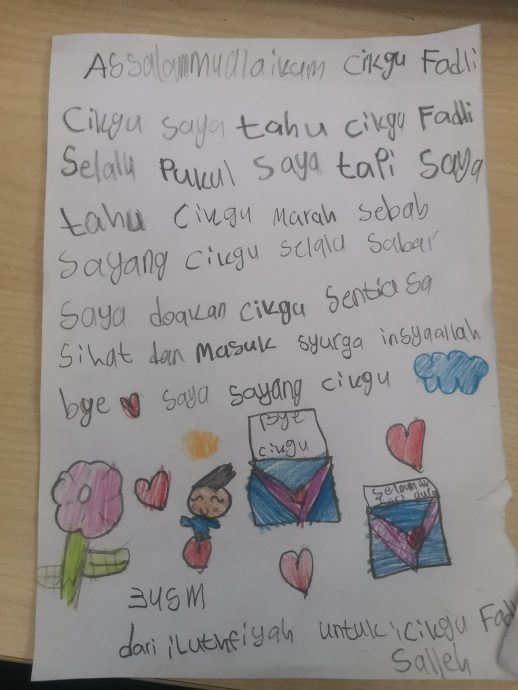 Assalammualaikum Cikgu Fadli
Cikgu saya tahu cikgu Fadli
Selalu Pukul saya tapi saya
tahu Cikgu marah sebab
sayang cikgu selalu sabar
saya doakan cikgu sentiasa
Sihat dan masuk syurga insyaallah
bye saya sayang cikgu
Bye
cikgu
Selamat
hari guru
3USM
dari iLuthfiyah untuk cikgu Fadli
Salleh